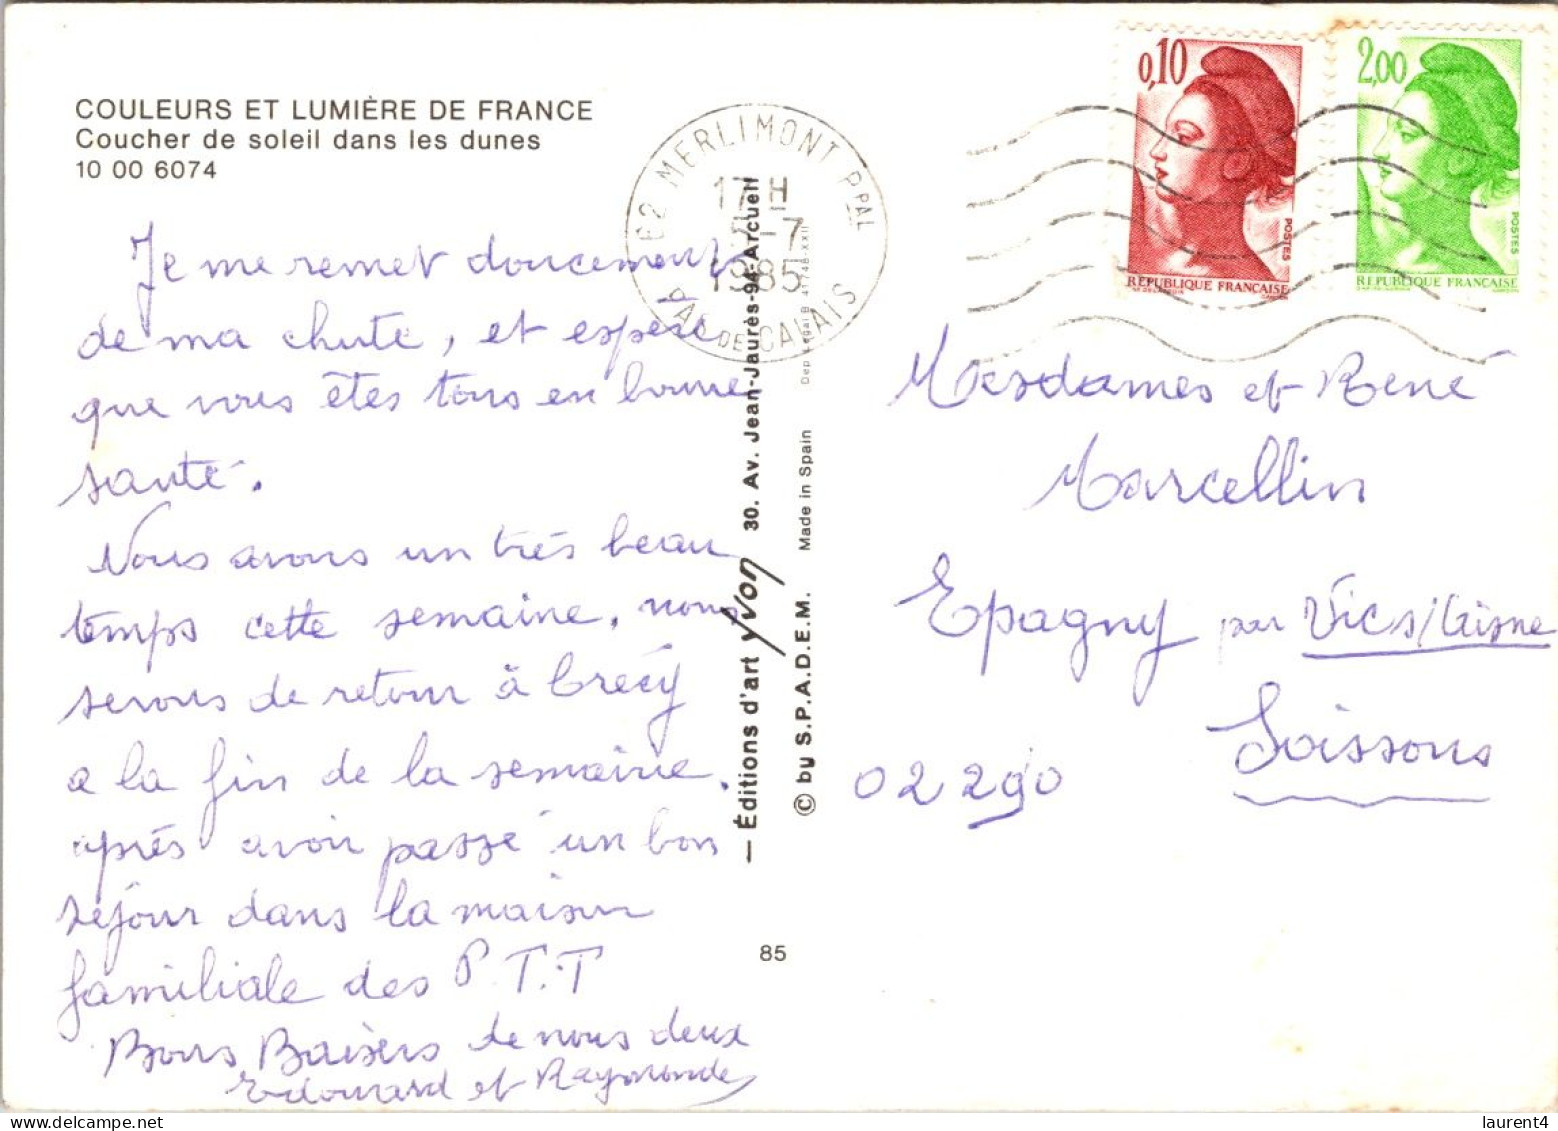 COULEURS ET LUMIÈRE DE FRANCE
Coucher de soleil dans les dunes
10 00 6074
Je me remet doucement
de ma chute, et espère
que vous êtes tous en bonne
santé.
Nous avons un très beau
temps cette semaine, nous
serons de retour à Crécy
a la fin de la semaine.
après avoir passé un bon
séjour dans la maison
familiale des P.T.T
Bons Baisers de nous deux
Edouard et Raymonde
62 MERLIMONT PPAL
17 H
-7
1985
PAS DE CALAIS
— Éditions d'art yvon 30. Av. Jean-Jaurès-94-Arcueil
© by S.P.A.D.E.M. Made in Spain Dep. Legal B. 41748-XXII
85
0,10
POSTES
RÉPUBLIQUE FRANÇAISE
2,00
POSTES
RÉPUBLIQUE FRANÇAISE
Mesdames et René
Marcellin
Epagny par Vic s/Aisne
Soissons
02290
laurent4